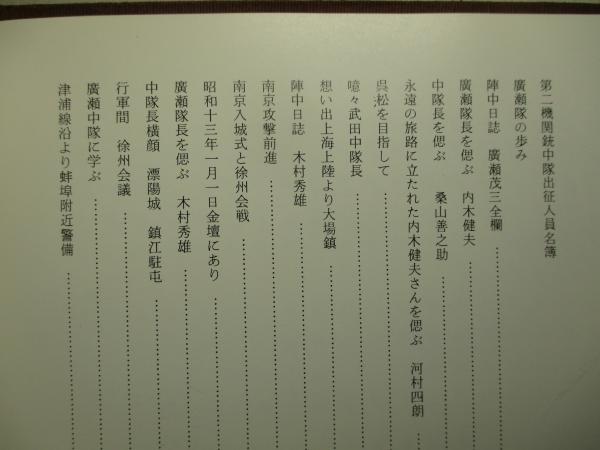 第二機関銃中隊出征人員名簿
廣瀬隊の歩み
陣中日誌　廣瀬茂三全欄
廣瀬隊長を偲ぶ　内木健夫
中隊長を偲ぶ　桑山善之助
永遠の旅路に立たれた内木健夫さんを偲ぶ　河村四朗
呉松を目指して
噫々武田中隊長
想い出上海上陸より大場鎮
陣中日誌　木村秀雄
南京攻撃前進
南京入城式と徐州会戦
昭和十三年一月一日金壇にあり
廣瀬隊長を偲ぶ　木村秀雄
中隊長横顔　漂陽城　鎮江駐屯
行軍間　徐州会議
廣瀬中隊に学ぶ
津浦線沿より蚌埠附近警備